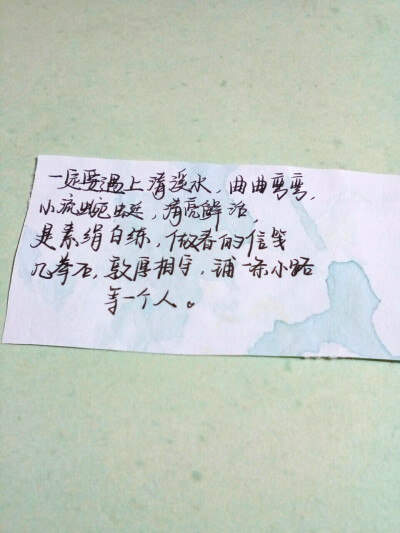 一定要遇上清溪水，曲曲弯弯，
小流蜿蜒，清亮鲜活，
是素绢白练，做春的信笺
几拳石，敦厚相守，铺一条小路
等一个人。